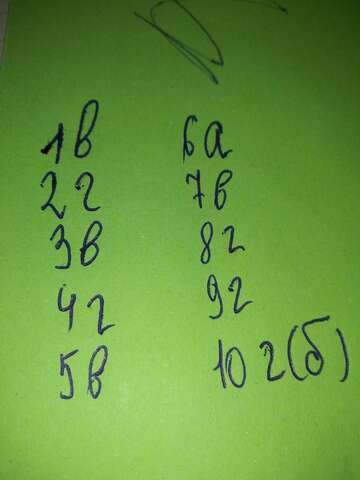 1в
2г
3в
4г
5в
6а
7в
8г
9г
10 г(б)